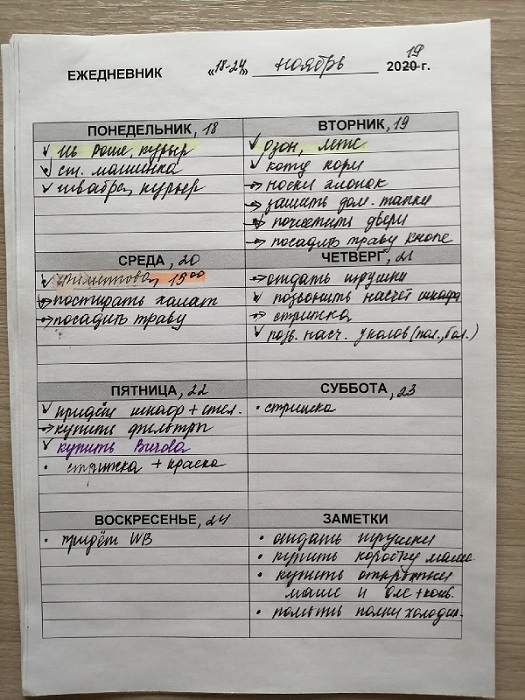 19
ЕЖЕДНЕВНИК «18-24» ноябрь 2020 г.
ПОНЕДЕЛЬНИК, 18
Ив Роше, курьер
ст. машинка
швабра, курьер
ВТОРНИК, 19
озон, лете
коту корм
носки хлопок
зашить дом. тапки
почистить двери
посадить траву кнопе
СРЕДА, 20
19 00
постирать халат
посадить траву
ЧЕТВЕРГ, 21
отдать игрушки
позвонить насчёт шкафа
стрижка
позв. насч. уколов (пол., бол.)
ПЯТНИЦА, 22
придёт шкаф + стел.
купить фильтры
купить
стрижка + краска
СУББОТА, 23
стрижка
ВОСКРЕСЕНЬЕ, 24
придёт WB
ЗАМЕТКИ
отдать игрушки
купить коробку маме
купить открытки
маме и оле + конв.
помыть полки холодил.